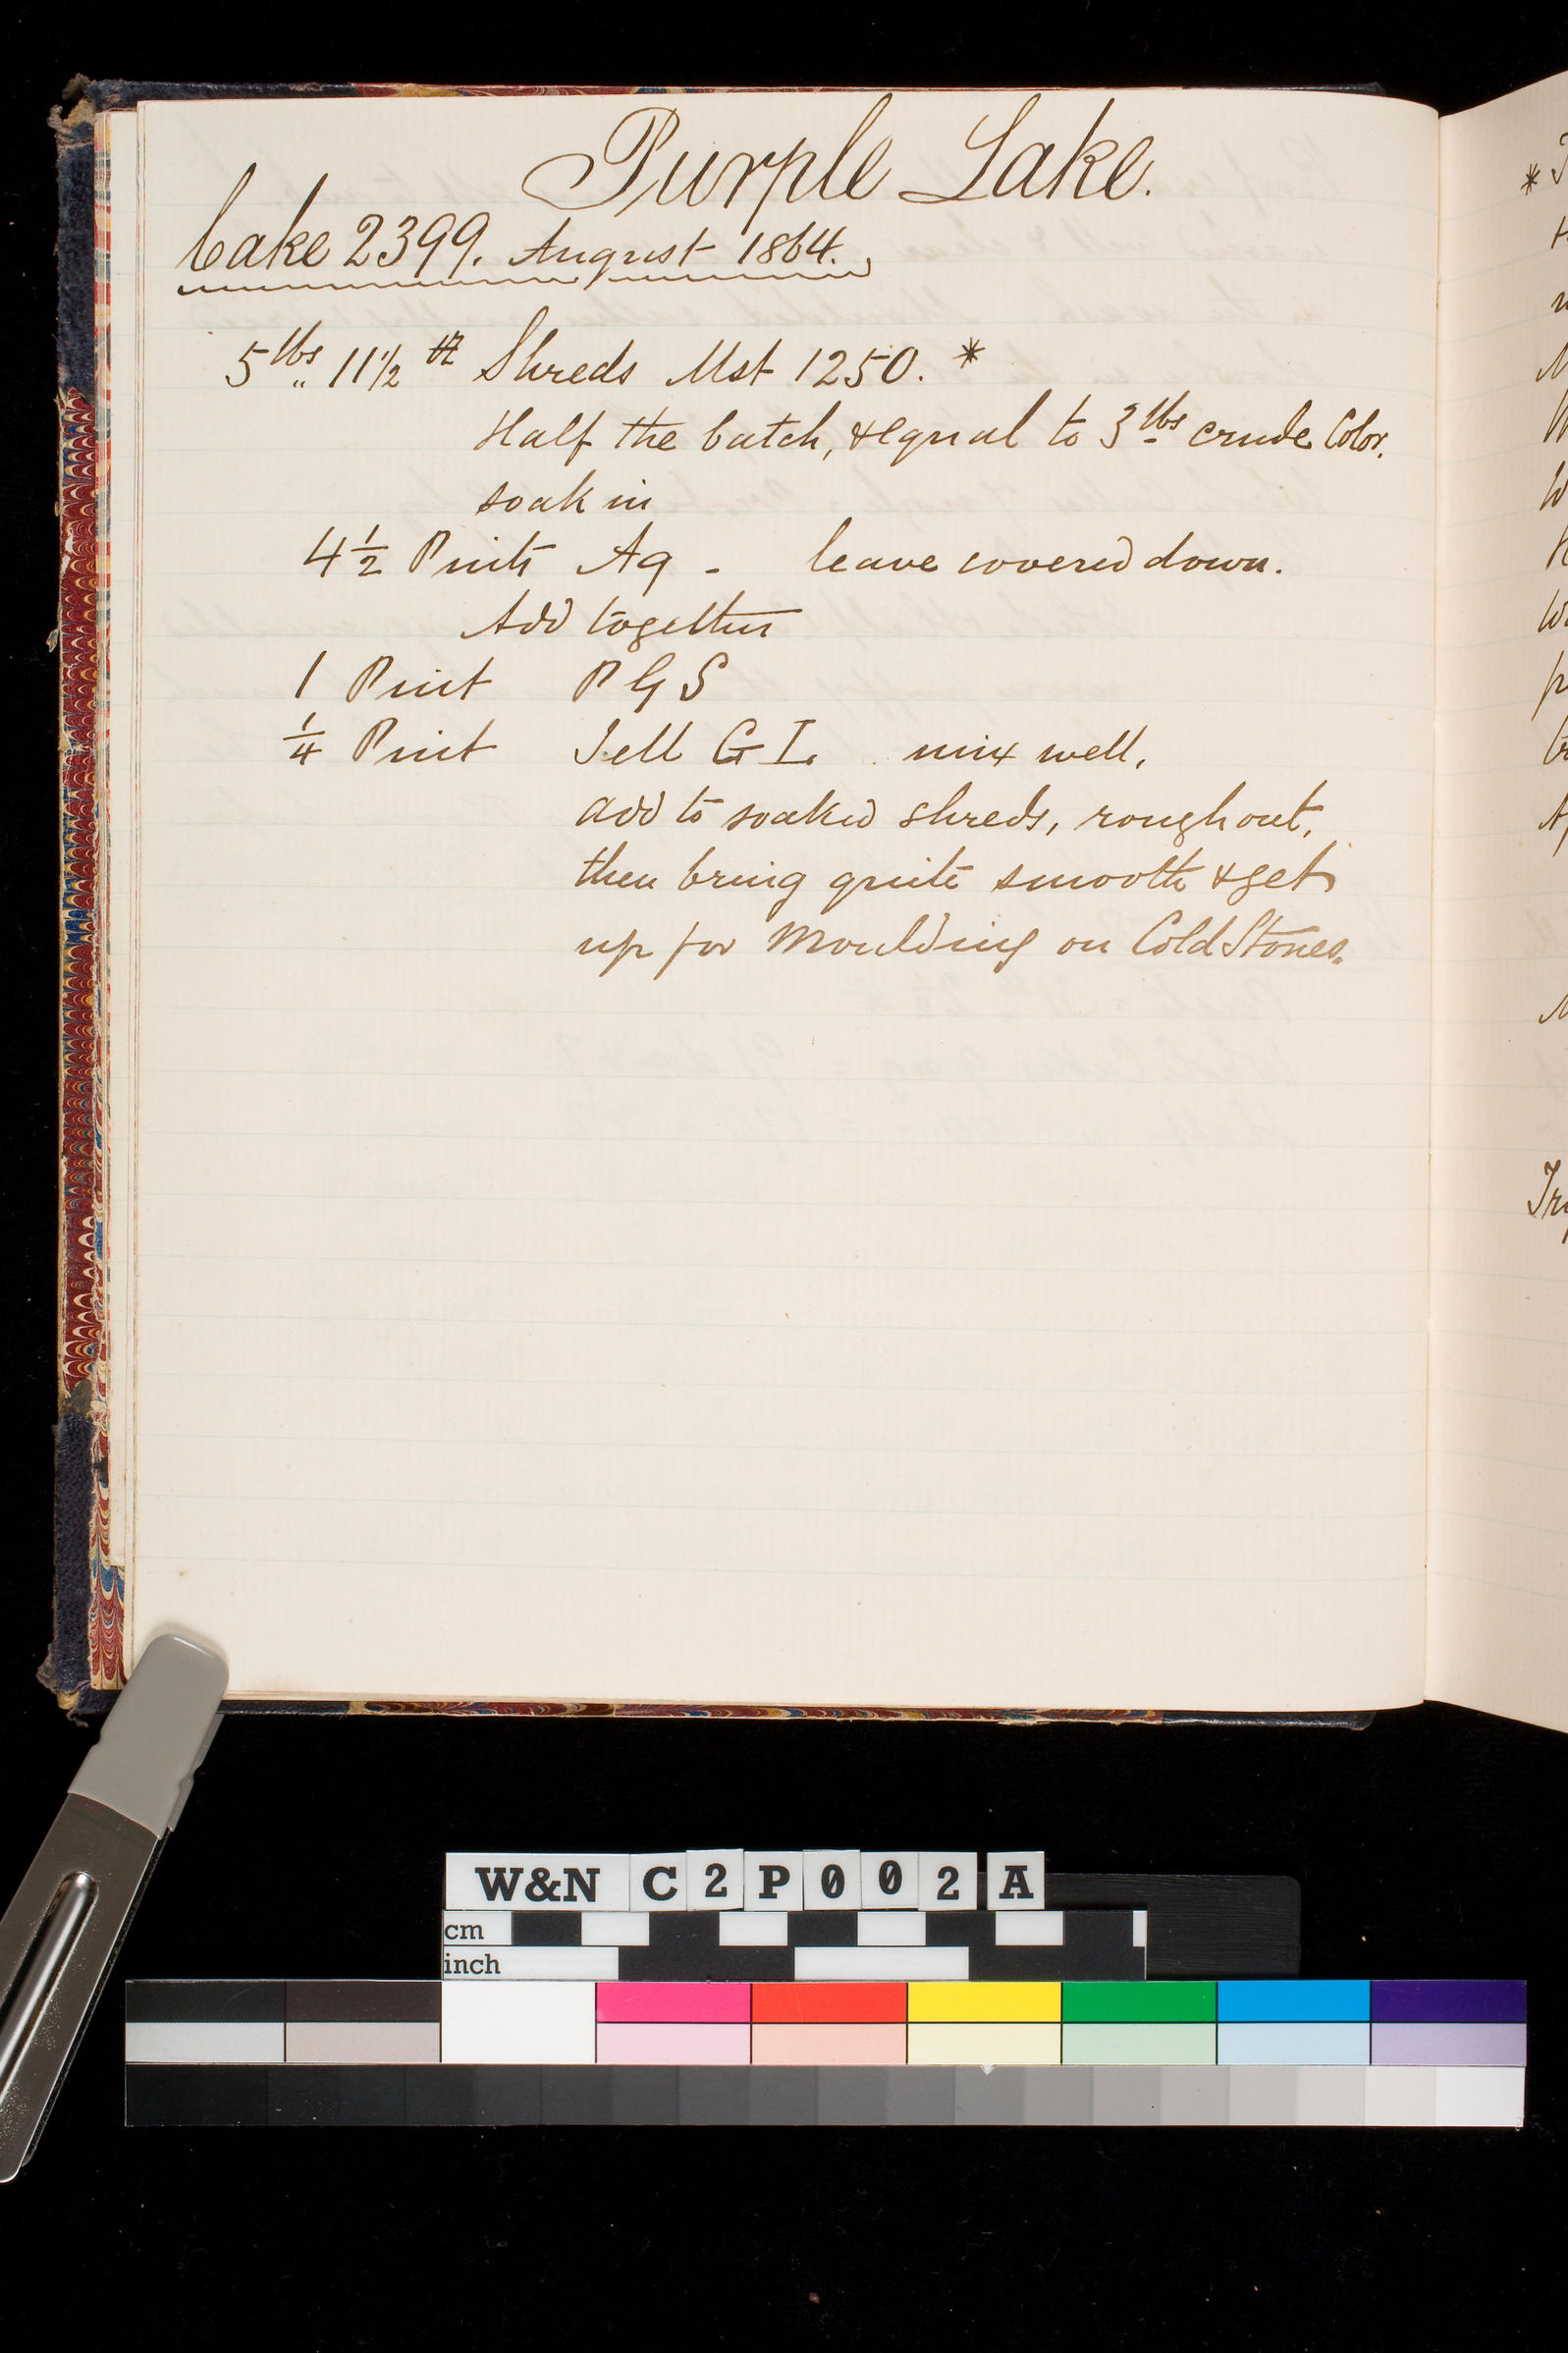 Purple Lake.
Cake 2399. August 1864.
5 lbs .. 11 1/2 oz Shreds Mst 1250. *
Half the batch, & equal to 3 lbs crude Color.
soak in
4 1/2 Pints Aq - leave covered down.
Add together
1 Pint P G S
1/4 Pint Jell G I. mix well,
add to soaked shreds, rough out,
then bring quite smooth & get
up for Moulding on Cold Stones.
W&N C2P002 A
cm
inch